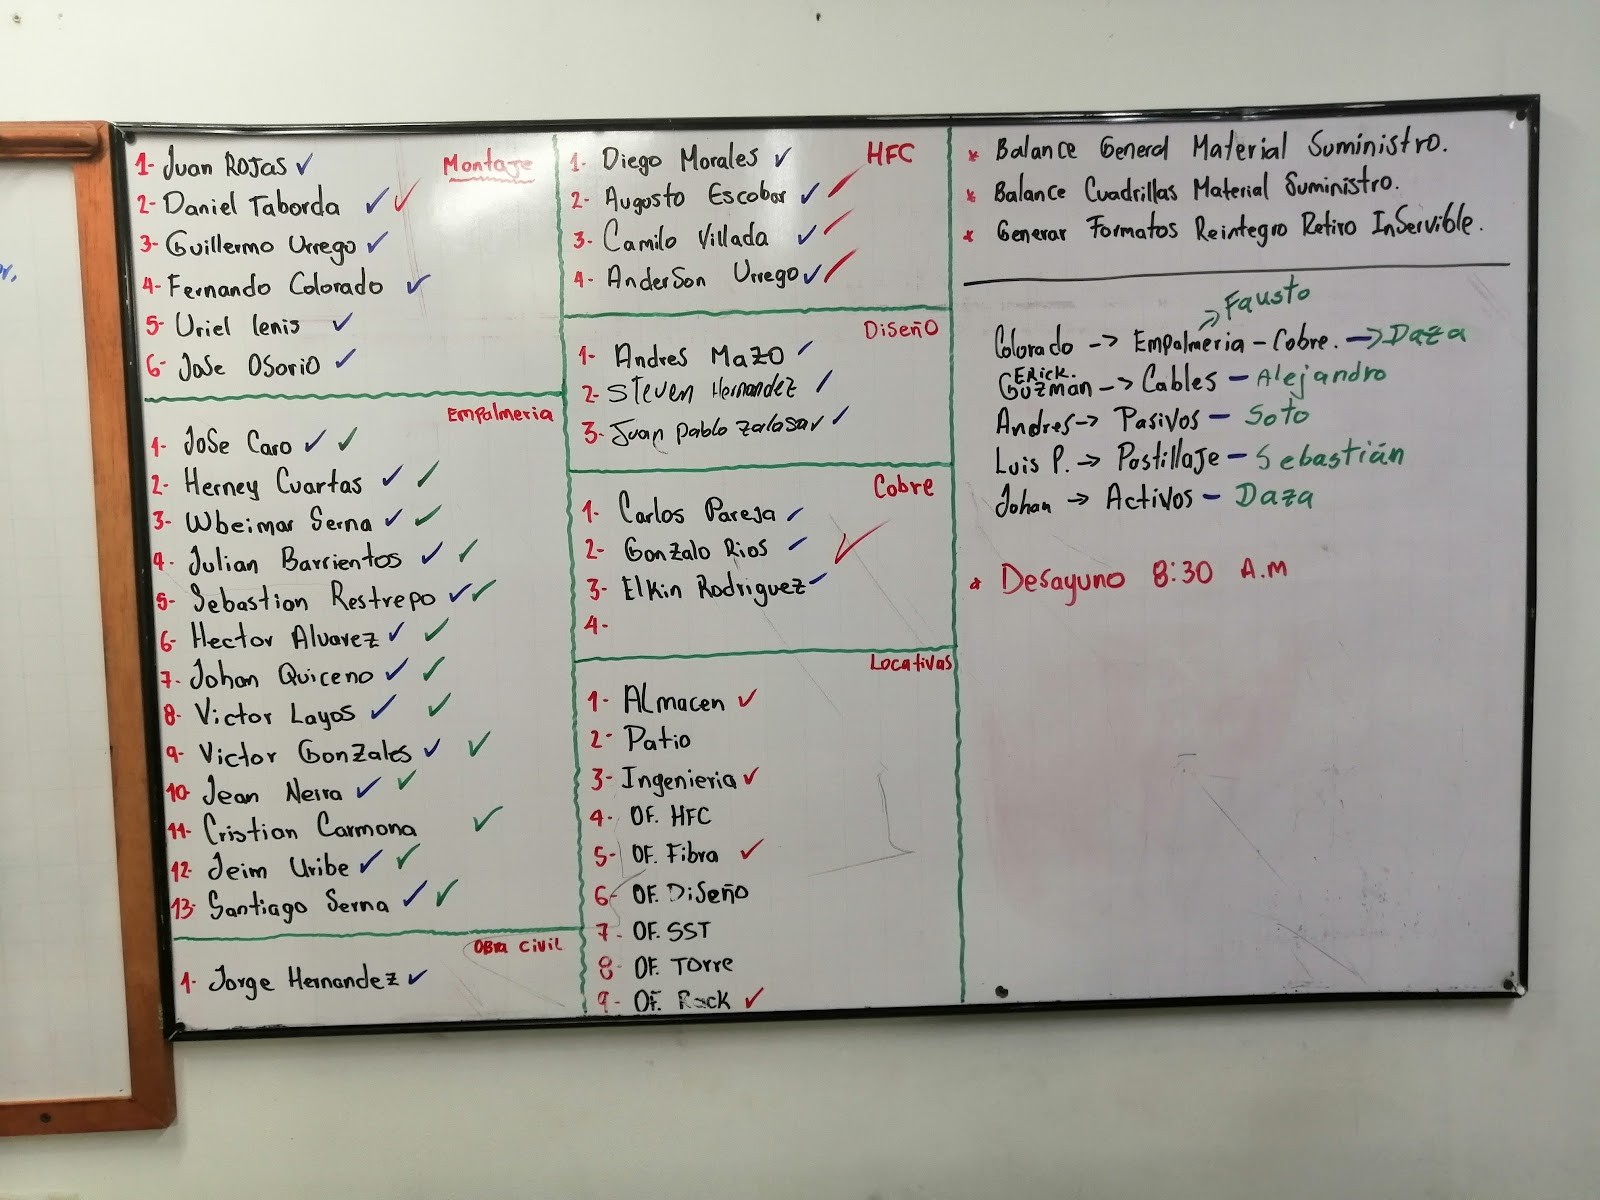 Montaje
1- Juan Rojas ✓
2- Daniel Taborda ✓ ✓
3- Guillermo Urrego ✓
4- Fernando Colorado ✓
5- Uriel lenis ✓
6- Jose Osorio ✓
Empalmeria
1- Jose Caro ✓ ✓
2- Herney Cuartas ✓ ✓
3- Wbeimar Serna ✓ ✓
4- Julian Barrientos ✓ ✓
5- Sebastian Restrepo ✓ ✓
6- Hector Alvarez ✓ ✓
7- Johan Quiceno ✓ ✓
8- Victor Layos ✓ ✓
9- Victor Gonzales ✓ ✓
10- Jean Neira ✓ ✓
11- Cristian Carmona ✓
12- Jeim Uribe ✓ ✓
13- Santiago Serna ✓ ✓
Obra Civil
1- Jorge Hernandez ✓
HFC
1- Diego Morales ✓
2- Augusto Escobar ✓ ✓
3- Camilo Villada ✓ ✓
4- Anderson Urrego ✓ ✓
Diseño
1- Andres Mazo ✓
2- Steven Hernandez ✓
3- Juan pablo zalasar ✓
Cobre
1- Carlos Pareja ✓
2- Gonzalo Rios ✓ ✓
3- Elkin Rodriguez ✓
4-
Locativas
1- Almacen ✓
2- Patio
3- Ingenieria ✓
4- OF. HFC
5- OF. Fibra ✓
6- OF. Diseño
7- OF. SST
8- OF. Torre
9- OF. Rack ✓
* Balance General Material Suministro.
* Balance Cuadrillas Material Suministro.
* Generar Formatos Reintegro Retiro InServible.
→ Fausto
Colorado → Empalmeria - Cobre. → Daza
Erick.
Guzman → Cables - Alejandro
Andres → Pasivos - Soto
Luis P. → Postillaje - Sebastián
Johan → Activos - Daza
* Desayuno 8:30 A.M